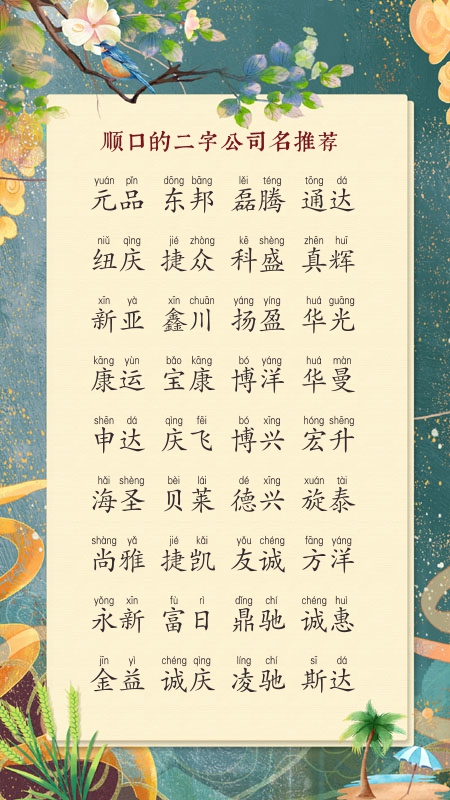 顺口的二字公司名推荐
yuán pǐn dōng bāng lěi téng tōng dá
元品 东邦 磊腾 通达
niǔ qìng jié zhòng kē shèng zhēn huī
纽庆 捷众 科盛 真辉
xīn yà xīn chuān yáng yíng huá guāng
新亚 鑫川 扬盈 华光
kāng yùn bǎo kāng bó yáng huá màn
康运 宝康 博洋 华曼
shēn dá qìng fēi bó xīng hóng shēng
申达 庆飞 博兴 宏升
hǎi shèng bèi lái dé xīng xuán tài
海圣 贝莱 德兴 旋泰
shàng yǎ jié kǎi yǒu chéng fāng yáng
尚雅 捷凯 友诚 方洋
yǒng xīn fù rì dǐng chí chéng huì
永新 富日 鼎驰 诚惠
jīn yì chéng qìng líng chí sī dá
金益 诚庆 凌驰 斯达